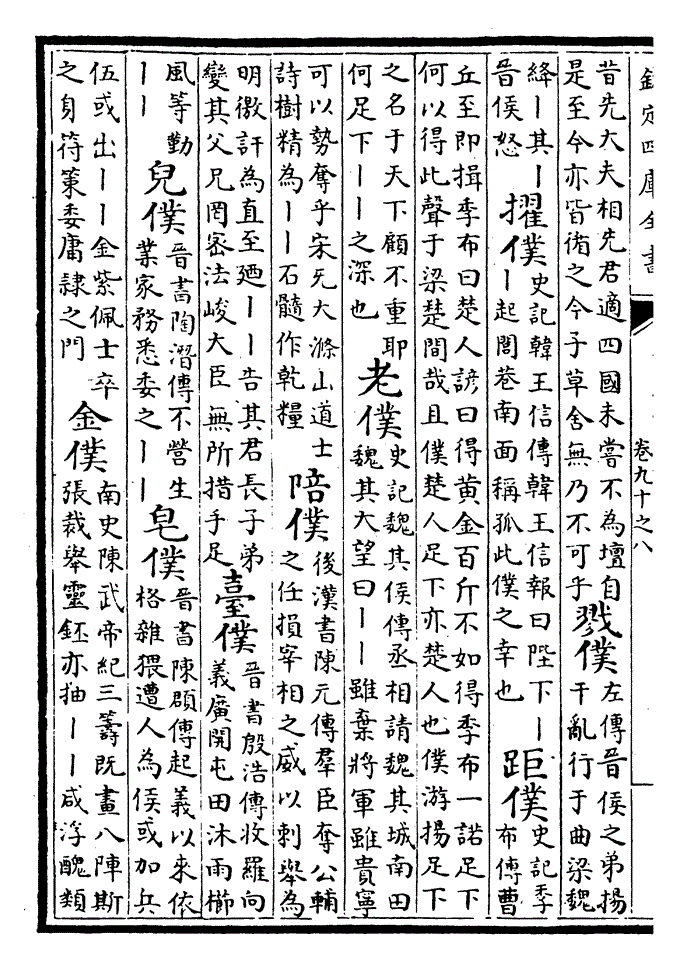 欽定四庫全書
卷九十之八
昔先大夫相先君適四國未嘗不為壇自
是至今亦皆循之今子草舍無乃不可乎
戮僕
左傳晉侯之弟揚
干亂行于曲梁魏
絳丨其丨
晉侯怒
擢僕
史記韓王信傳韓王信報曰陛下丨
丨起閭巷南面稱孤此僕之幸也
距僕
史記季
布傳曹
丘至即揖季布曰楚人諺曰得黃金百斤不如得季布一諾足下
何以得此聲于梁楚間哉且僕楚人足下亦楚人也僕游揚足下
之名于天下顧不重耶
何足下丨丨之深也
老僕
史記魏其侯傳丞相請魏其城南田
魏其大望曰丨丨雖棄將軍雖貴寧
可以勢奪乎宋旡大滌山道士
詩樹精為丨丨石髓作乾糧
陪僕
後漢書陳元傳羣臣奪公輔
之任損宰相之威以刺舉為
明徼訐為直至廼丨丨告其君長子弟
變其父兄罔密法峻大臣無所措手足
臺僕
晉書殷浩傳收羅向
義廣開屯田沐雨櫛
風等勤
丨丨
兒僕
晉書陶潛傳不營生
業家務悉委之丨丨
皂僕
晉書陳頵傳起義以來依
格雜猥遭人為侯或加兵
伍或出丨丨金紫佩士卒
之身符策委庸隸之門
金僕
南史陳武帝紀三籌既畫八陣斯
張裁舉靈鉟亦抽丨丨咸浮醜類